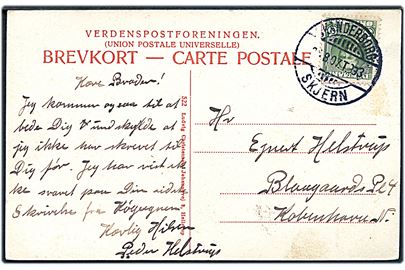 VERDENSPOSTFORENINGEN.
(UNION POSTALE UNIVERSELLE)
BREVKORT — CARTE POSTALE
SKJERN
Kære Broder!
Jeg kommer også til at
bede Dig undskylde at
jeg ikke har skrevet til
Dig før. Jeg har vist ik-
ke svaret paa Din sidste
Skrivelse fra
Kærlig Hilsen
Peder Helstrup
Hr
Ejnert Helstrup
Blaagaards Pl 4
København N.